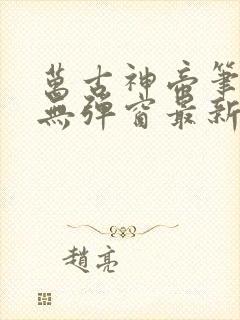 萬古神帝筆
無彈窗最新
趙亮